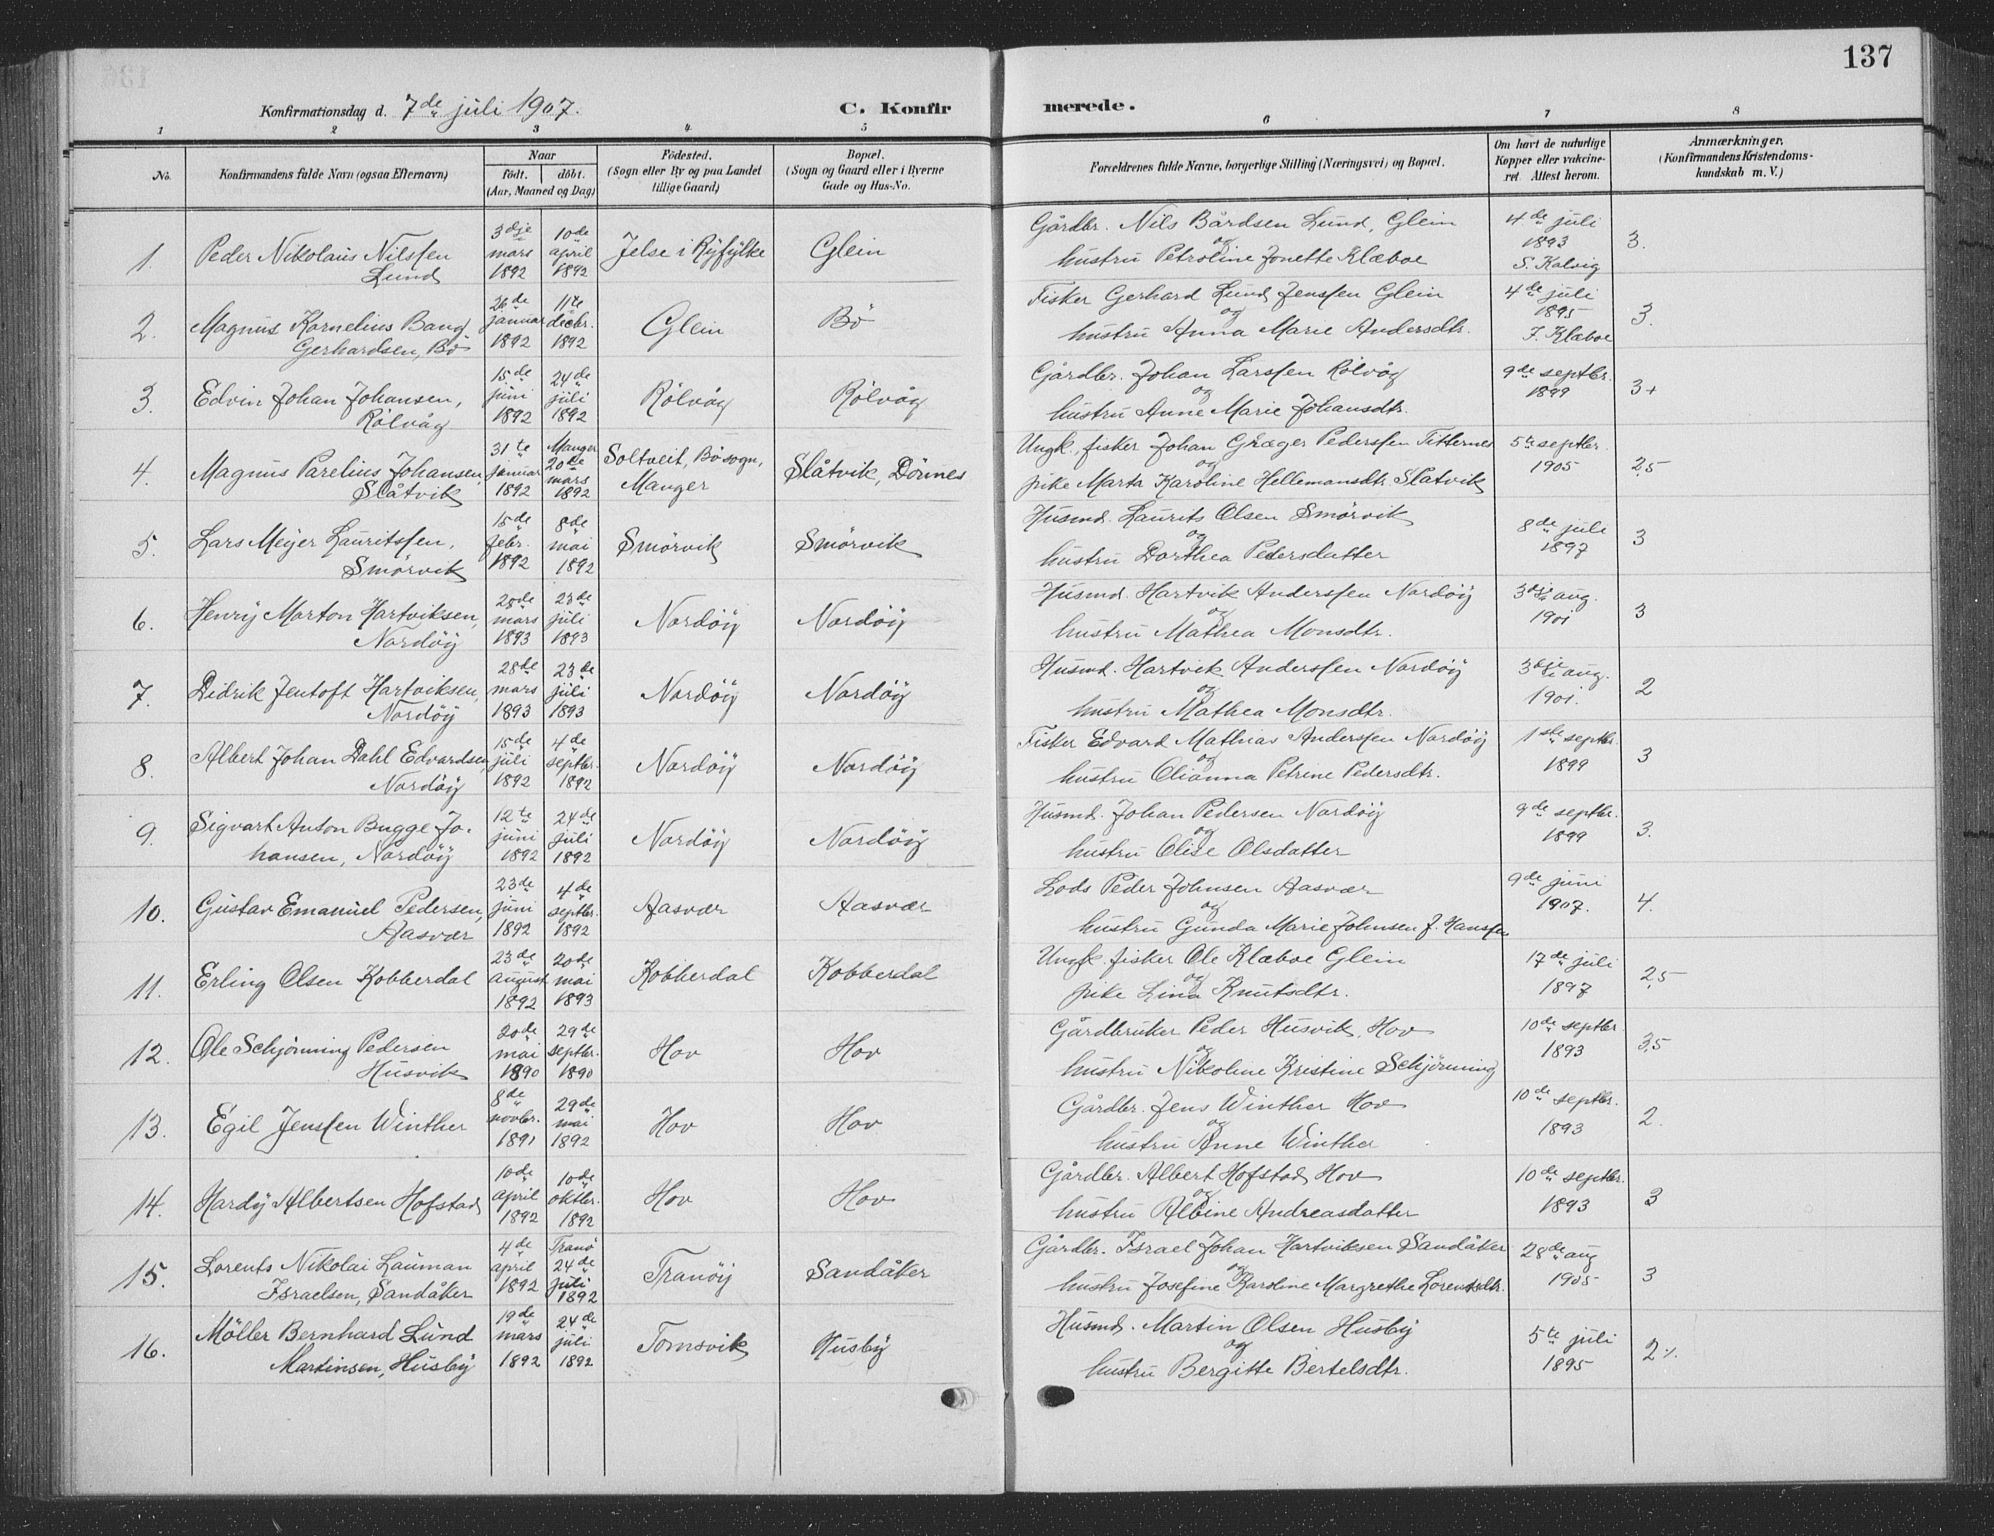 137
Konfirmationsdag d. 7de juli 1907. C. Konfirmerede.
1 2 3 4 5 6 7 8
No. Konfirmandens fulde Navn (ogsaa Efternavn) Naar født. døbt. (Aar, Maaned og Dag) Fødested. (Sogn eller By og paa Landet tillige Gaard) Bopæl. (Sogn og Gaard eller i Byerne Gade og Hus-No. Forældrenes fulde Navne, borgerlige Stilling (Næringsvei) og Bopæl. Om havt de naturlige Kopper eller vakcineret. Attest herom. Anmærkninger. (Konfirmandens Kristendomskundskab m. V.)
1. Peder Nikolaus Nilssen Lund 3dje mars 1892 10de april 1892 Jelse i Ryfylke Glein Gårdbr. Nils Bårdsen Lund, Glein og hustru Petroline Jonette Klæboe 4de juli 1893 S. Kalvig 3.
2. Magnus Kornelius Bang Gerhardsen, Bö 26de januar 1892 11te decbr. 1892 Glein Bö Fisker Gerhard Lund Jenssen Glein og hustru Anna Marie Andersdtr. 4de juli 1895 J. Klæboe 3.
3. Edvin Johan Johansen, Rölvåg 15de juni 1892 24de juli 1892 Rölvåg Rölvåg Gårdbr. Johan Larssen Rölvåg og hustru Anne Marie Johansdtr. 9de septbr. 1899 3+
4. Magnus Parelius Johansen, Slåtvik 31te januar 1892 Manger 20de mars 1892 Soltveit, Bösogn, Manger Slåtvik, Dönnes Ungk., fisker Johan Græger Pederssen Titternes og pike Marta Karoline Hellemansdtr. Slåtvik 5te septbr. 1905 2,5
5. Lars Meyer Lauritssen, Smörvik 15de febr. 1892 8de mai 1892 Smörvik Smörvik Husmd. Laurits Olsen Smörvik og hustru Dorthea Pedersdatter 8de juli 1897 3
6. Henry Marton Hartviksen, Nordöy 28de mars 1893 23de juli 1893 Nordöy Nordöy Husmd. Hartvik Anderssen Nordöy og hustru Mathea Monsdtr. 3dje aug. 1901 3
7. Didrik Jentoft Hartviksen, Nordöy 28de mars 1893 23de juli 1893 Nordöy Nordöy Husmd. Hartvik Anderssen Nordöy og hustru Mathea Monsdtr. 3dje aug. 1901. 2
8. Albert Johan Dahl Edvardsen, Nordöy 15de juli 1892 4de septbr. 1892 Nordöy Nordöy Fisker Edvard Mathias Anderssen Nordöy og hustru Olianna Petrine Pedersdtr. 1ste septbr. 1899 3
9. Sigvart Anton Bugge Johansen, Nordöy 12te juni 1892 24de juli 1892 Nordöy Nordöy Husmd. Johan Pedersen Nordöy og hustru Olise Olsdatter 9de septbr. 1899 3.
10. Gustav Emanuel Pedersen, Aasvær 23de juni 1892 4de septbr. 1892 Aasvær Aasvær Lods Peder Johnsen Aasvær og hustru Gunda Marie Johnsen f. Hanssen 9de juni 1907. 4.
11. Erling Olsen Kobberdal 23de august 1892 20de mai 1893 Kobberdal Kobberdal Ungk. fisker Ole Klæboe Glein og pike Lina Knutsdtr. 17de juli 1897 2,5
12. Ole Schjönning Pedersen Husvik 20de mai 1890 29de septbr. 1890 Hov Hov Gårdbruker Peder Husvik, Hov og hustru Nikoline Kristine Schjönning 10de septbr. 1893 3,5
13. Egil Jenssen Winther 8de novbr. 1891 29de mai 1892 Hov Hov Gårdbr. Jens Winther Hov og hustru Anne Winther 10de septbr. 1893 2.
14. Hardy Albertsen Hofstad 10de april 1892 10de oktbr. 1892 Hov Hov Gårdbr. Albert Hofstad Hov og hustru Albine Andreasdatter 10de septbr. 1893 3
15. Lorents Nikolai Lauman Israelsen, Sandåker 4de april 1892 Tranö 24de juli 1892 Tranöy Sandåker Gårdbr. Israel Johan Hartviksen Sandåker og hustru Josefine Karoline Margrethe Lorentsdtr. 28de aug 1905 3
16. Möller Bernhard Lund Martinsen, Husby 19de mars 1892 24de juli 1892 Tomsvik Husby Husmd. Martin Olsen Husby og hustru Bergitte Bertelsdtr. 5te juli 1895 2